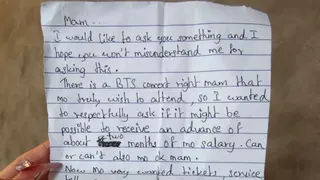 Mam...
I would like to ask you something and I
hope you won't misunderstand me for
asking this.
There is a BTS concert right mam that
mo truly wish to attend, so I wanted
to respectfully ask if it might be
possible to receive an advance of
about two months of mo salary. Can
or can't also mo ok mam.
Now mo very wanted tickets, service